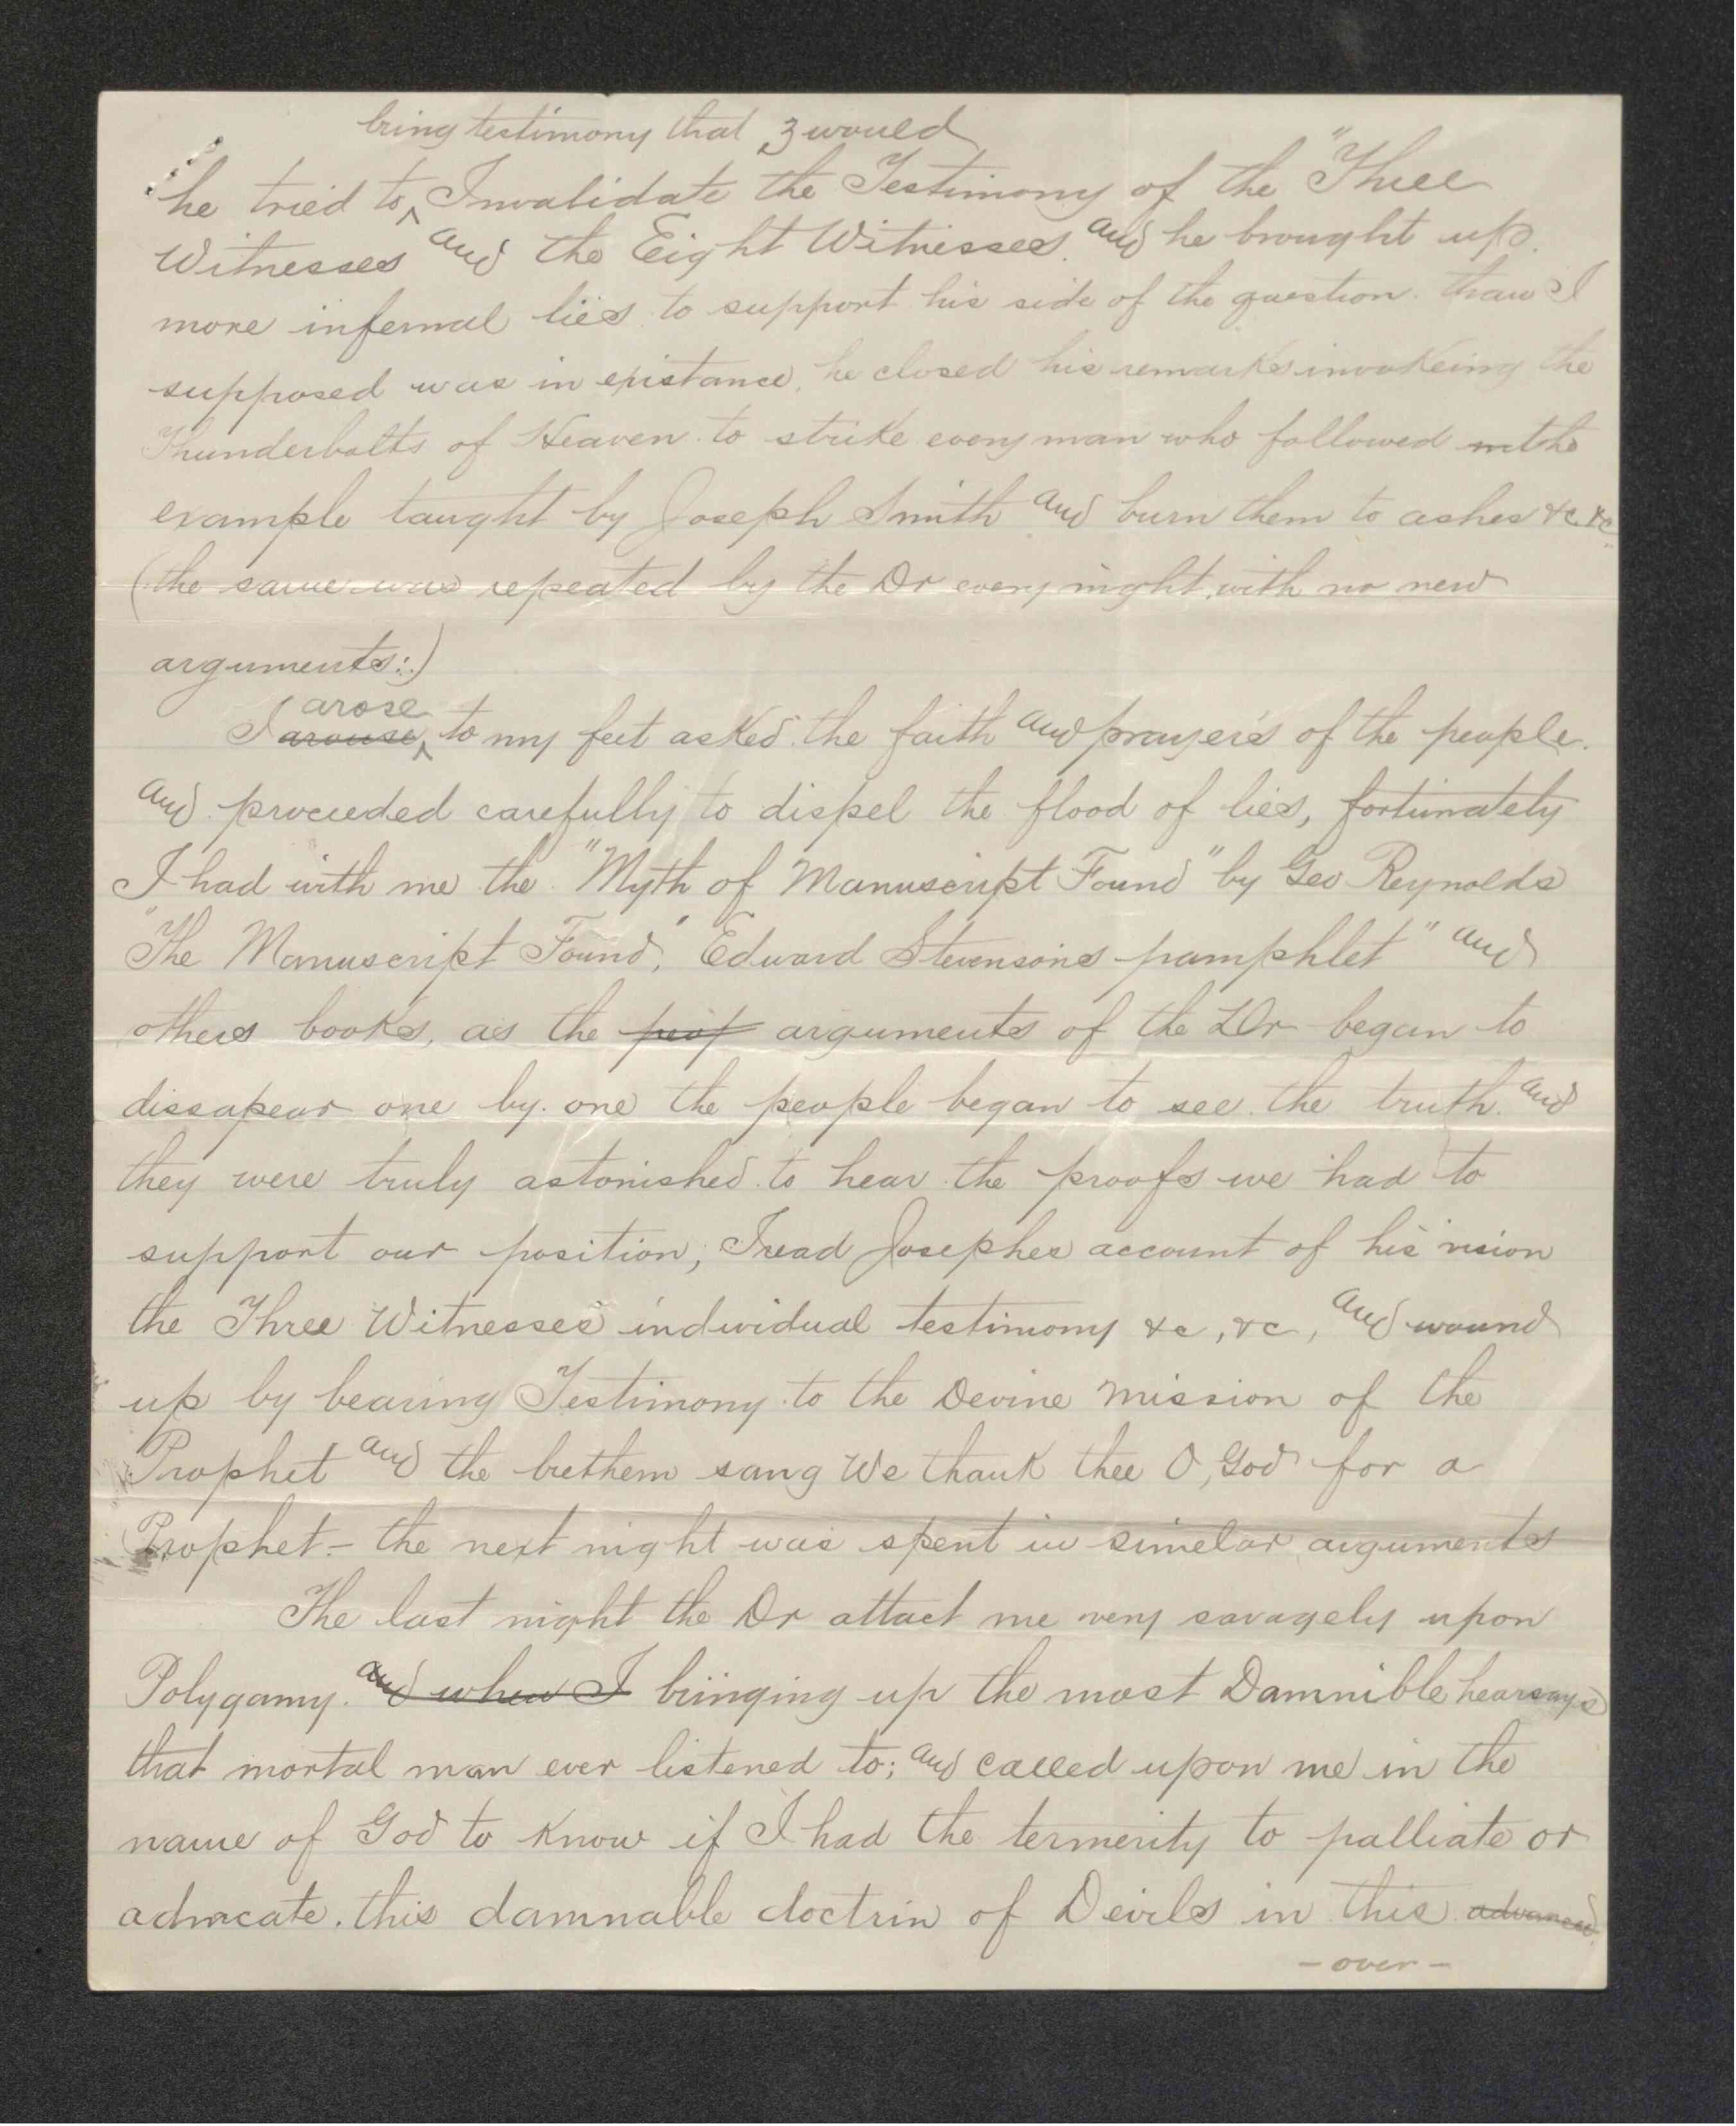 bring testimony that 3 would
he tried to Invalidate the Testimony of the "Three
Witnesses and the Eight Witnesses. and he brought up.
more infernal lies to support his side of the question. than I
supposed was in existance, he closed his remarks invokeing the
Thunderbolts of Heaven to strike every man who followed the
example taught by Joseph Smith and burn them to ashes &c. &c
(the same was repeated by the Dr every night, with no new
arguments:.)
arose
I arouse to my feet asked the faith and prayers of the people.
and proceeded carefully to dispel the flood of lies, fortunately
I had with me the "Myth of Manuscript Found" by Geo Reynolds
"The Manuscript Found," Edward Stevensons pamphlet" and
others books, as the arguments of the Dr began to
dissapear one by. one the people began to see the truth. and
they were truly astonished to hear the proofs we had to
support our position; I read Josephes account of his vision
the Three Witnesses individual testimony &c, &c, and wound
up by bearing Testimony to the Devine Mission of the
Prophet and the brethern sang We thank thee O, God for a
Prophet.- the next night was spent in similar arguments
The last night the Dr attact me very savagely upon
Polygamy. and when I bringing up the most Damnible hearsays
that mortal man ever listened to; and called upon me in the
name of God to know if I had the termerity to palliate or
advocate. this damnable doctrin of Devils in this advanced
- over -